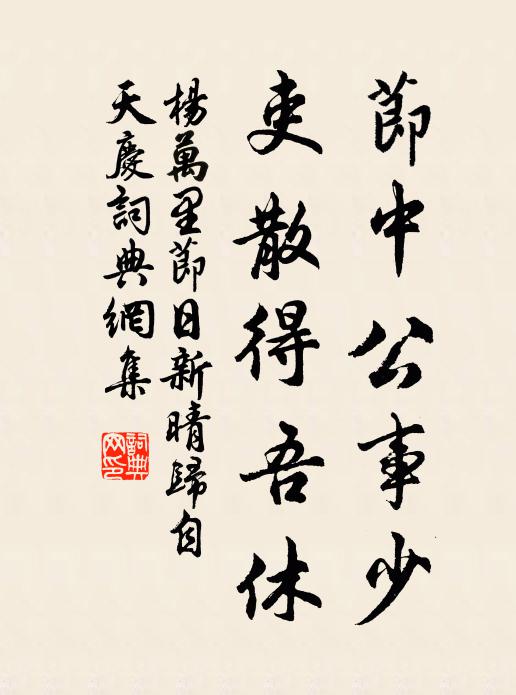 節中公事少
吏散得吾休
楊萬里節日新晴歸自
天慶詞典網集
詞典网印